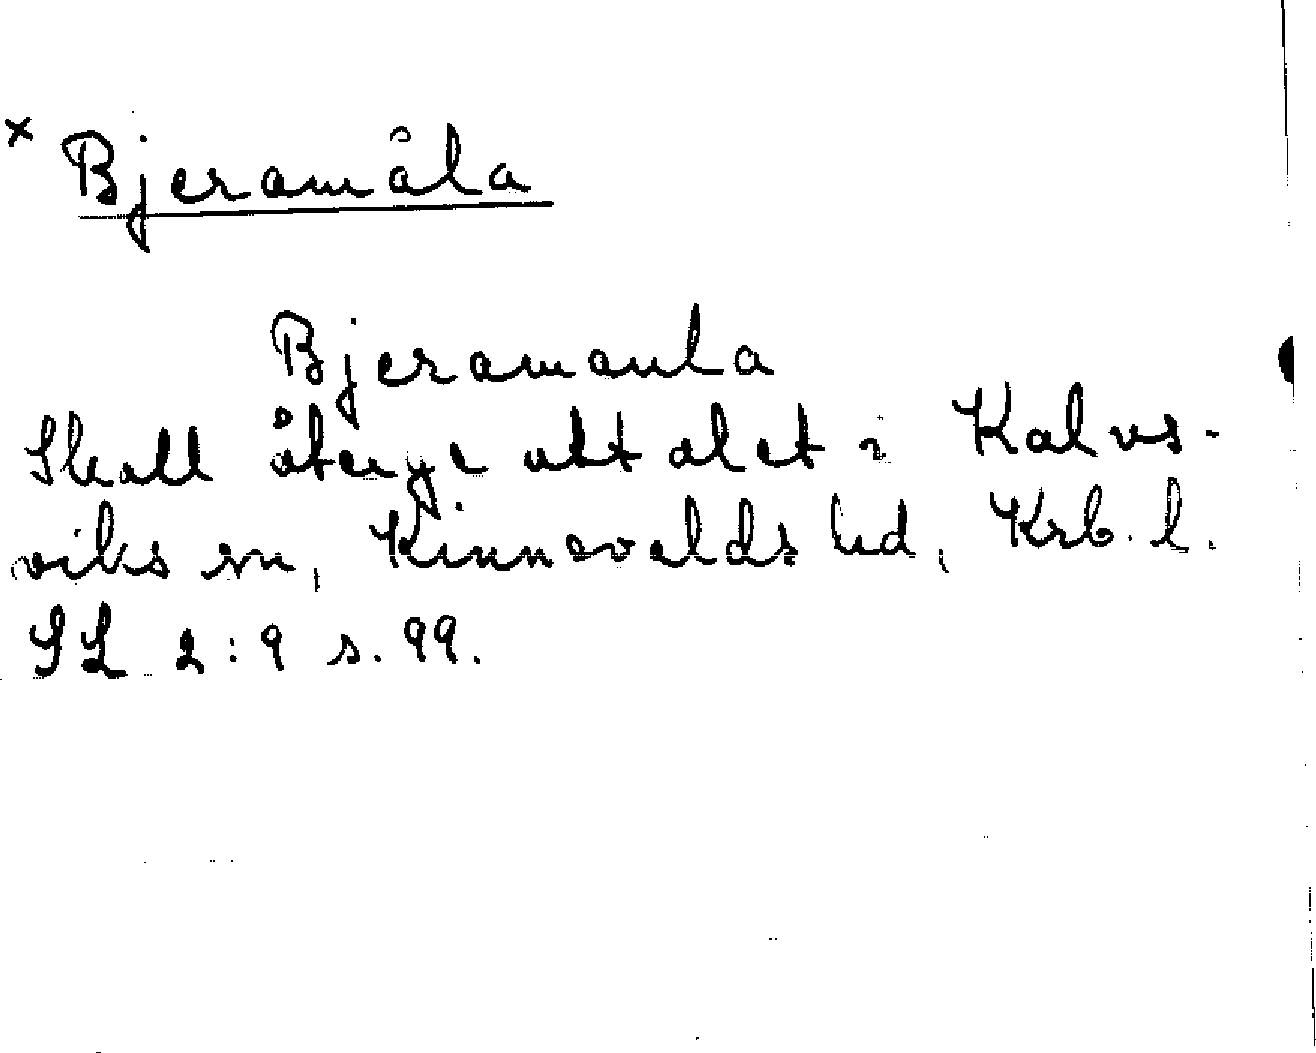 x Bjeramåla
Bjeramaula
Skall återge uttalet i Kalvs-
viks sn, Kinnevalds hd, Krb. l.
SL 2:9 s. 99.